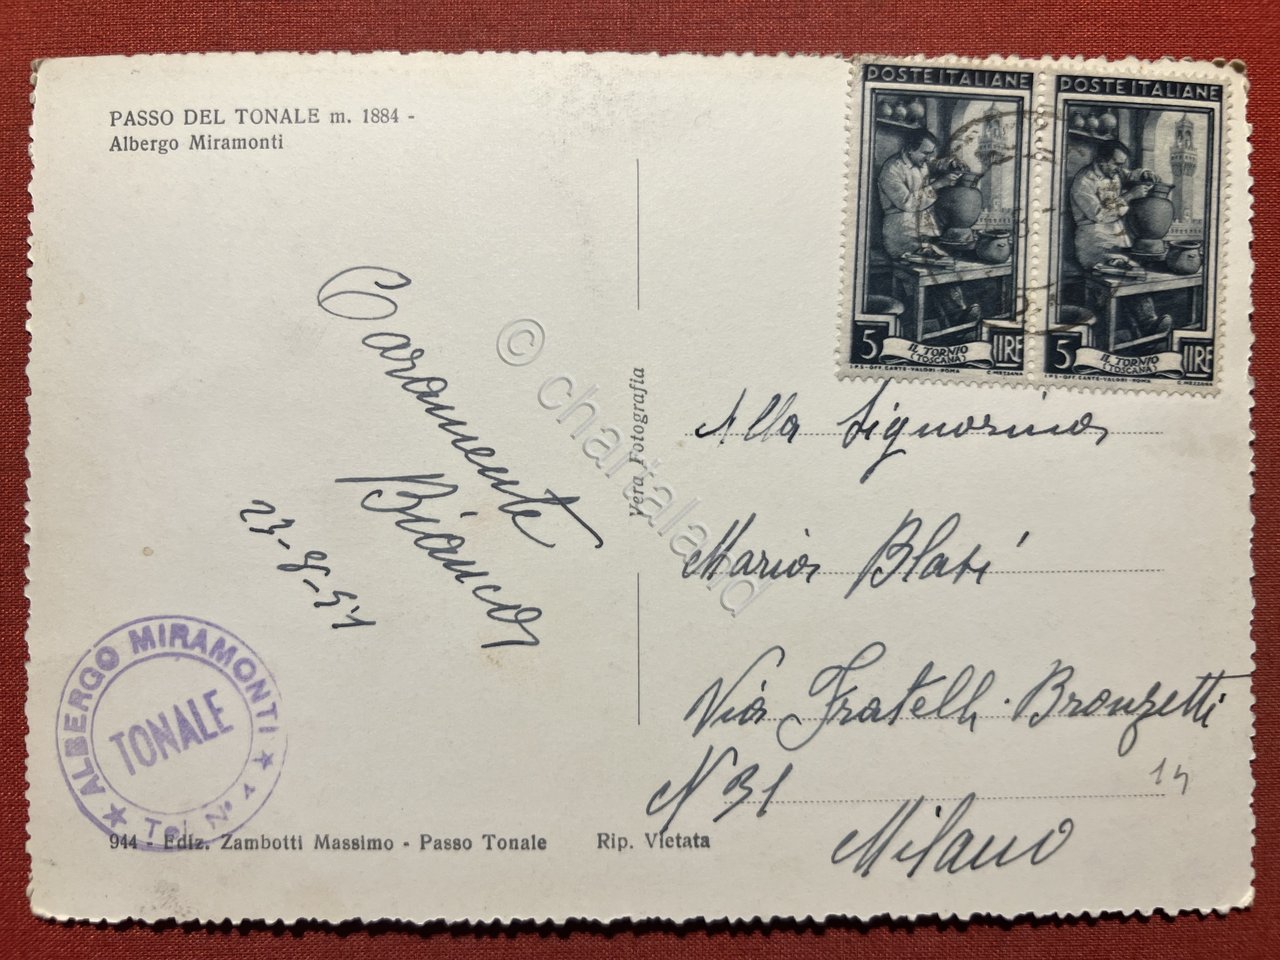 PASSO DEL TONALE m. 1884 -
Albergo Miramonti
POSTE ITALIANE
5 LIRE
IL TORNIO
(TOSCANA)
I.P.S-OFF. CARTE-VALORI-ROMA C. MEZZANA
POSTE ITALIANE
5 LIRE
IL TORNIO
(TOSCANA)
I.P.S-OFF. CARTE-VALORI-ROMA C. MEZZANA
Caramente
Bianca
23-8-51
Vera Fotografia
© chartaland
Alla Signorina
Maria Blasi
Via Fratelli Bronzetti
N 31
14
Milano
ALBERGO MIRAMONTI
TONALE
Tel. N° 4
944 - Ediz. Zambotti Massimo - Passo Tonale Rip. Vietata